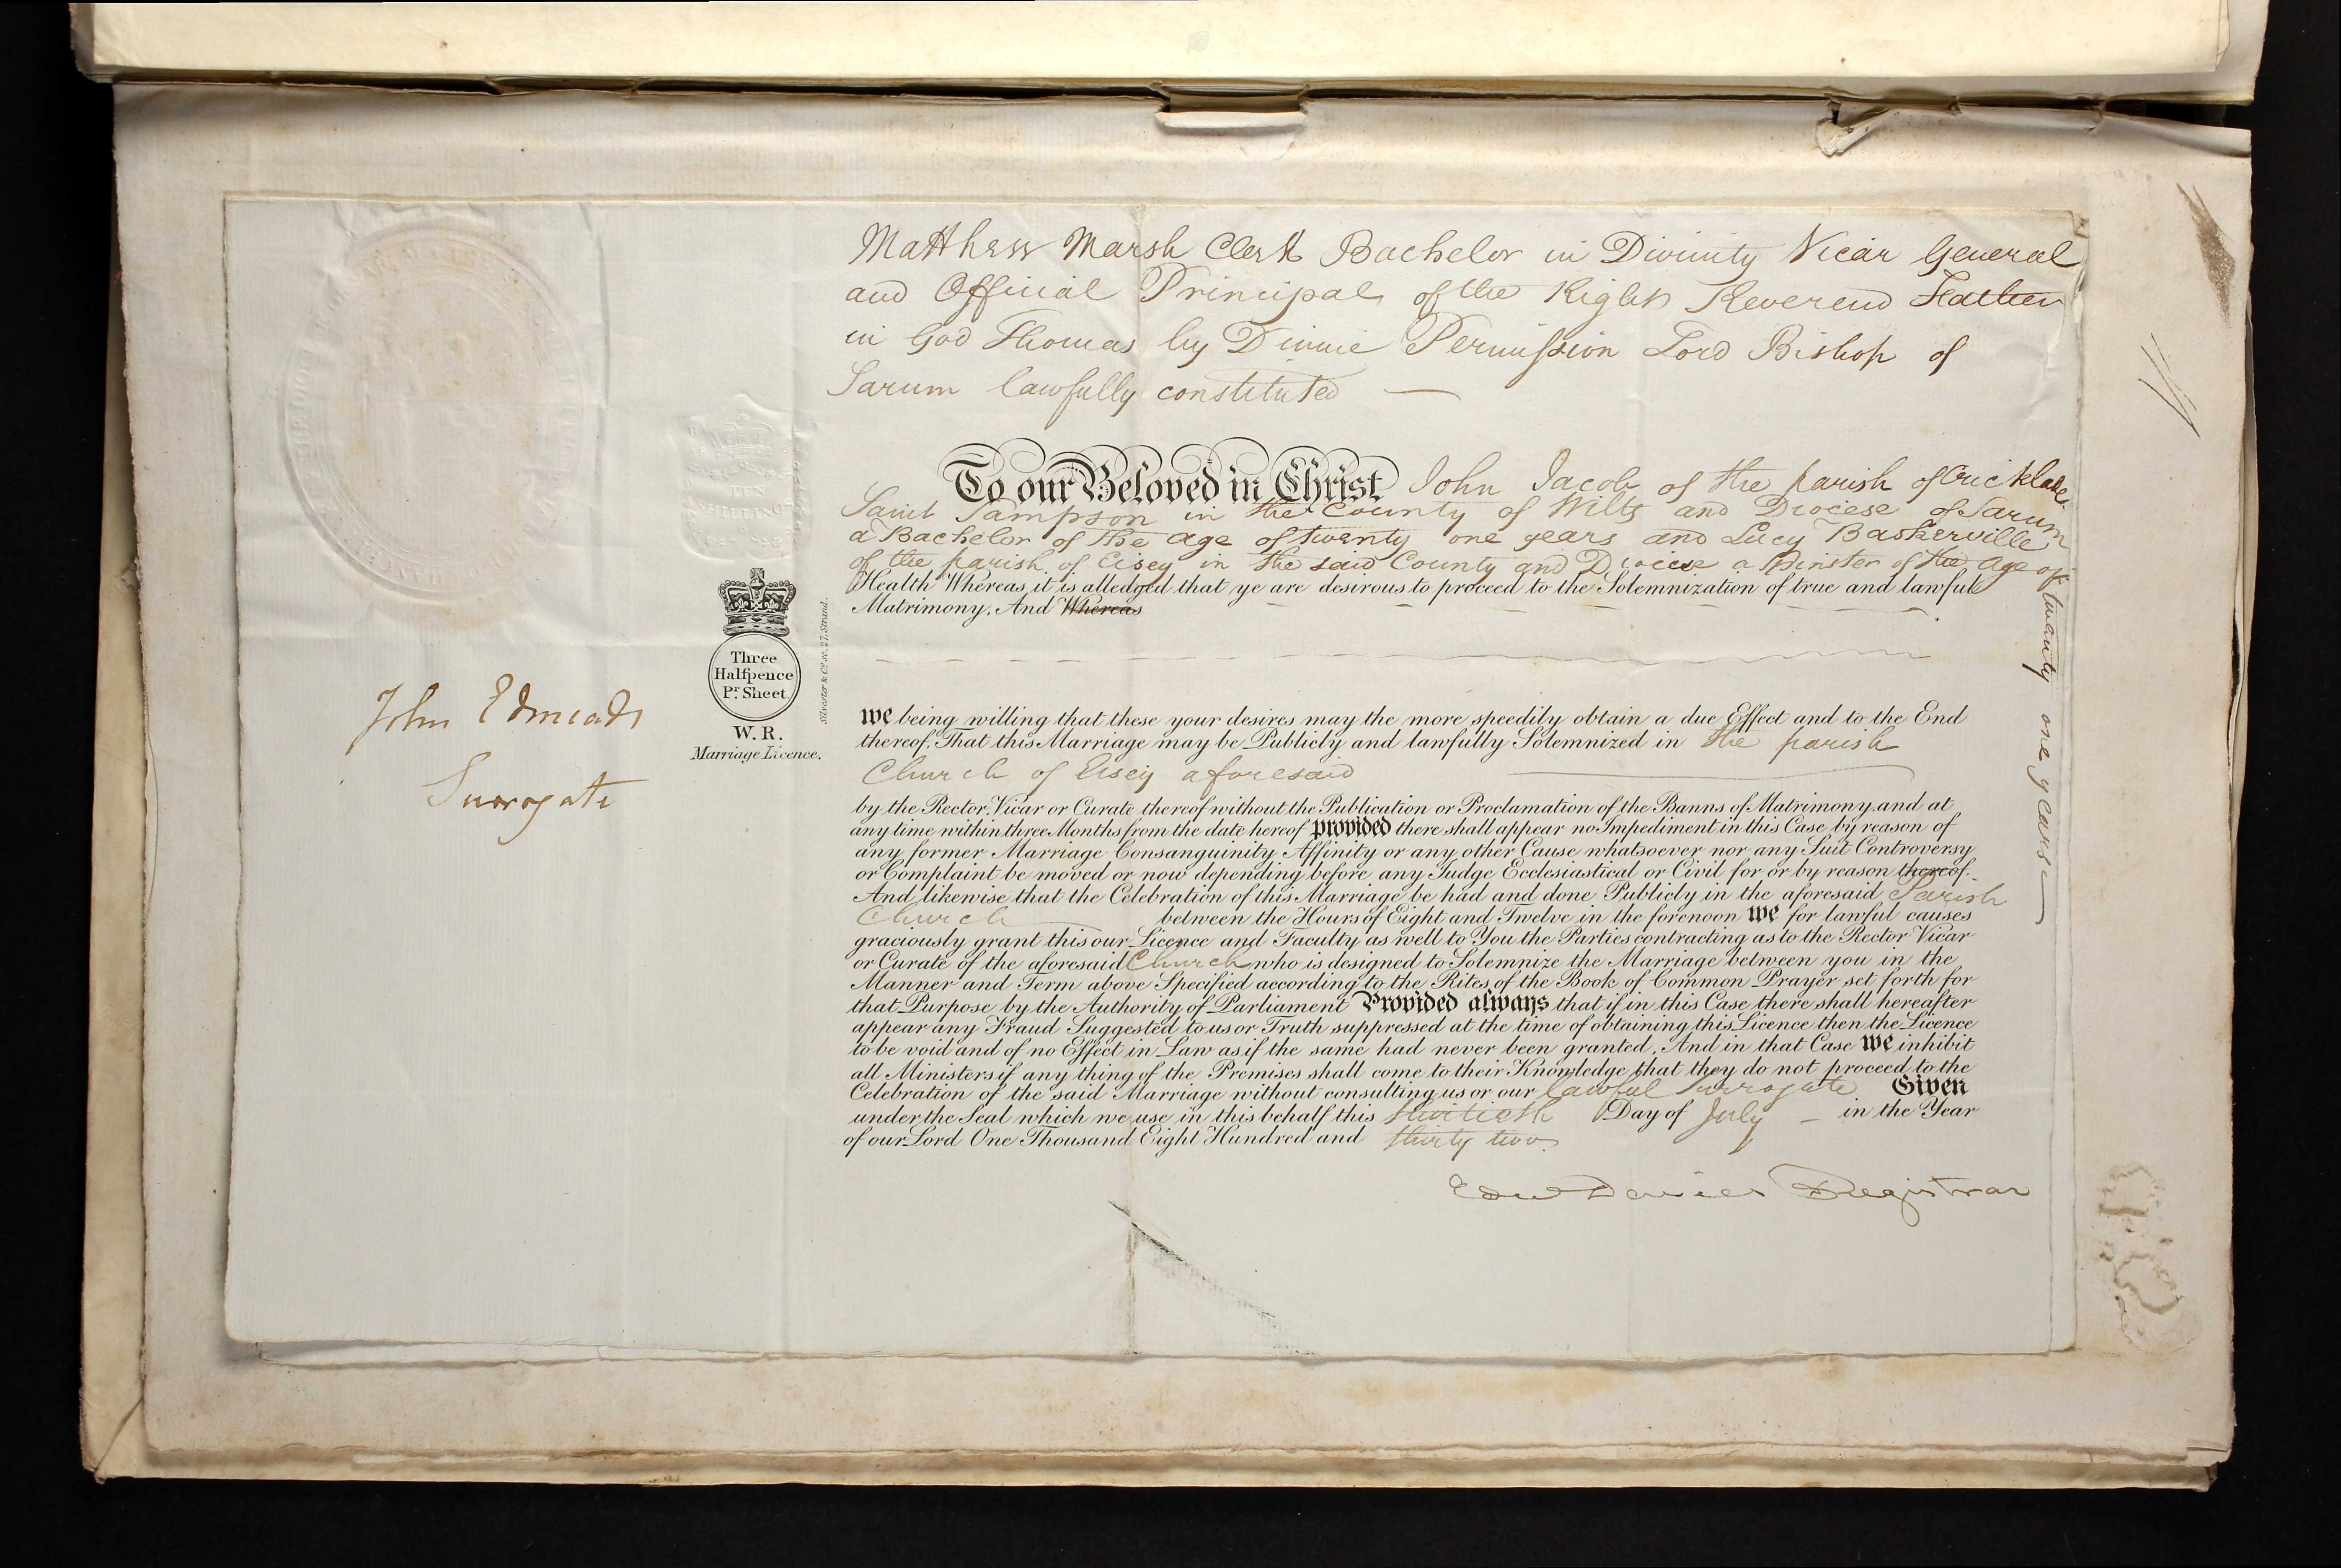 Matthew Marsh Clerk Bachelor in Divinity Vicar General
and Official Principal of the Right Reverend Father
in God Thomas by Divine Permission Lord Bishop of
Sarum lawfully constituted —
To our Beloved in Christ John Jacob of the parish of Cricklade
Saint Sampson in the County of Wilts and Diocese of Sarum
a Bachelor of the age of twenty one years and Lucy Baskerville
of the parish of Eisey in the said County and Diocese a Spinster of the age of
twenty one years —
Health Whereas it is alledged that ye are desirous to proceed to the Solemnization of true and lawful
Matrimony. And Whereas
We being willing that these your desires may the more speedily obtain a due Effect and to the End
thereof. That this Marriage may be Publicly and lawfully Solemnized in the parish
Church of Eisey aforesaid
by the Rector, Vicar or Curate thereof without the Publication or Proclamation of the Banns of Matrimony, and at
any time within three Months from the date hereof provided there shall appear no Impediment in this Case by reason of
any former Marriage Consanguinity Affinity or any other Cause whatsoever nor any Suit Controversy
or Complaint be moved or now depending before any Judge Ecclesiastical or Civil for or by reason thereof.
And likewise that the Celebration of this Marriage be had and done Publicly in the aforesaid Parish
Church between the Hours of Eight and Twelve in the forenoon We for lawful causes
graciously grant this our Licence and Faculty as well to You the Parties contracting as to the Rector Vicar
or Curate of the aforesaid Church who is designed to Solemnize the Marriage between you in the
Manner and Term above Specified according to the Rites of the Book of Common Prayer set forth for
that Purpose by the Authority of Parliament Provided always that if in this Case there shall hereafter
appear any Fraud Suggested to us or Truth suppressed at the time of obtaining this Licence then the Licence
to be void and of no Effect in Law as if the same had never been granted. And in that Case We inhibit
all Ministers if any thing of the Premises shall come to their Knowledge that they do not proceed to the
Celebration of the said Marriage without consulting us or our lawful Surrogate Given
under the Seal which we use in this behalf this Day of July – in the Year
of our Lord One Thousand Eight Hundred and thirty two
Edw Davies Registrar
TEN
SHILLINGS
Three
Halfpence
Pr. Sheet.
W. R.
Marriage Licence.
Silvester & Co. sc. 27, Strand.
John Edmeads
Surrogate